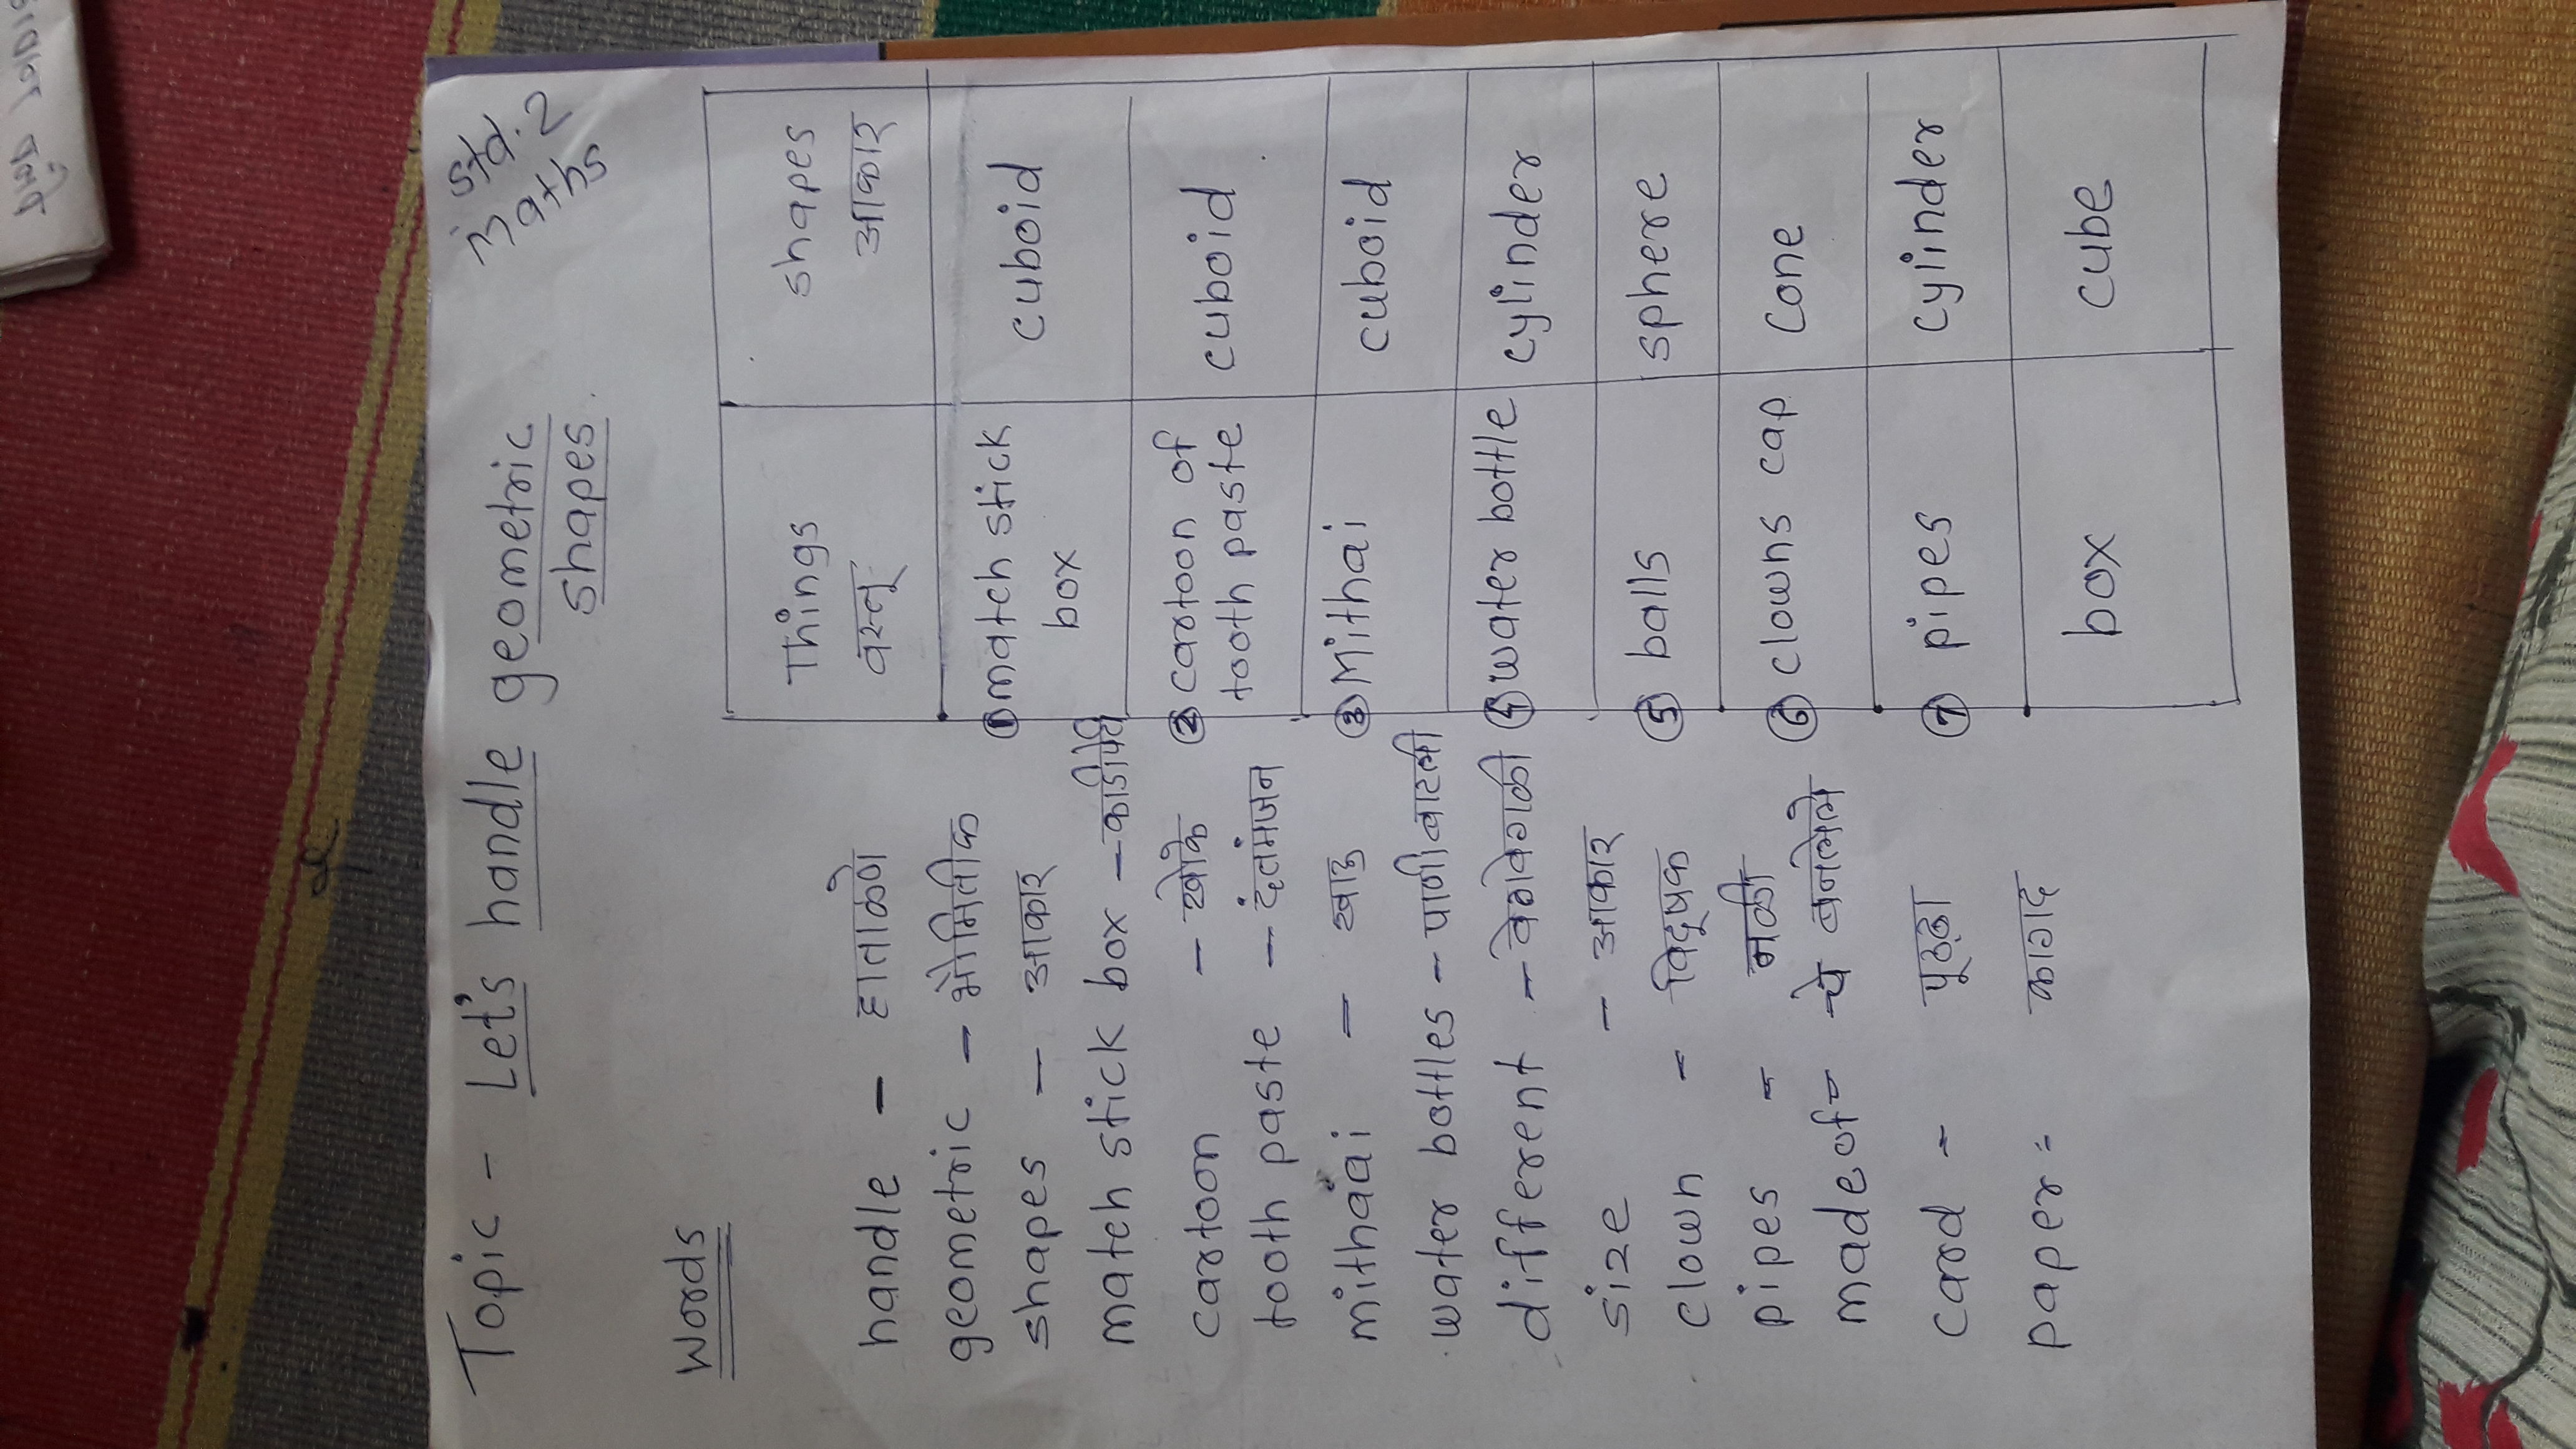 std. 2
Maths
Topic - Let's handle geometric
shapes.
words
handle - हाताळणे
geometric - भौमितीक
shapes - आकार
match stick box - काडीपेटी
cartoon - खोके
tooth paste - दंतमंजन
mithaai - खाऊ
water bottles - पाणी बाटली
different - वेगवेगळी
size - आकार
clown - विदूषक
pipes - नळी
made of - चे बनलेले
card - पूठ्ठा
paper = कागद
Things shapes
वस्तू आकार
① match stick box cuboid
② cartoon of tooth paste cuboid
③ Mithai cuboid
④ water bottle cylinder
⑤ balls sphere
⑥ clowns cap cone
⑦ pipes cylinder
box cube